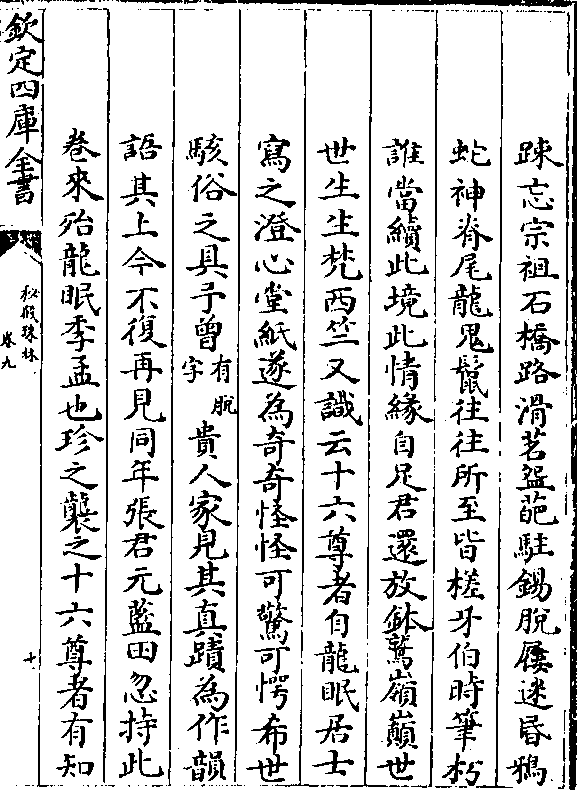 踈忘宗祖石橋路滑茗盌葩駐錫脫屨迷昏鴉
蛇神脊尾龍鬼鬣往往所至皆槎牙伯時筆杇
誰當續此境此情緣自足君還放鉢鷲嶺巔世
世生生梵西竺又識云十六尊者自龍眠居士
寫之澄心堂紙遂為奇奇怪怪可驚可愕希世
駭俗之具予曾有脫字貴人家見其真蹟為作韻
語其上今不復再見同年張君元藍田忽持此
卷來殆龍眠季孟也珍之襲之十六尊者有知
欽定四庫全書
秘殿珠林
卷九
十